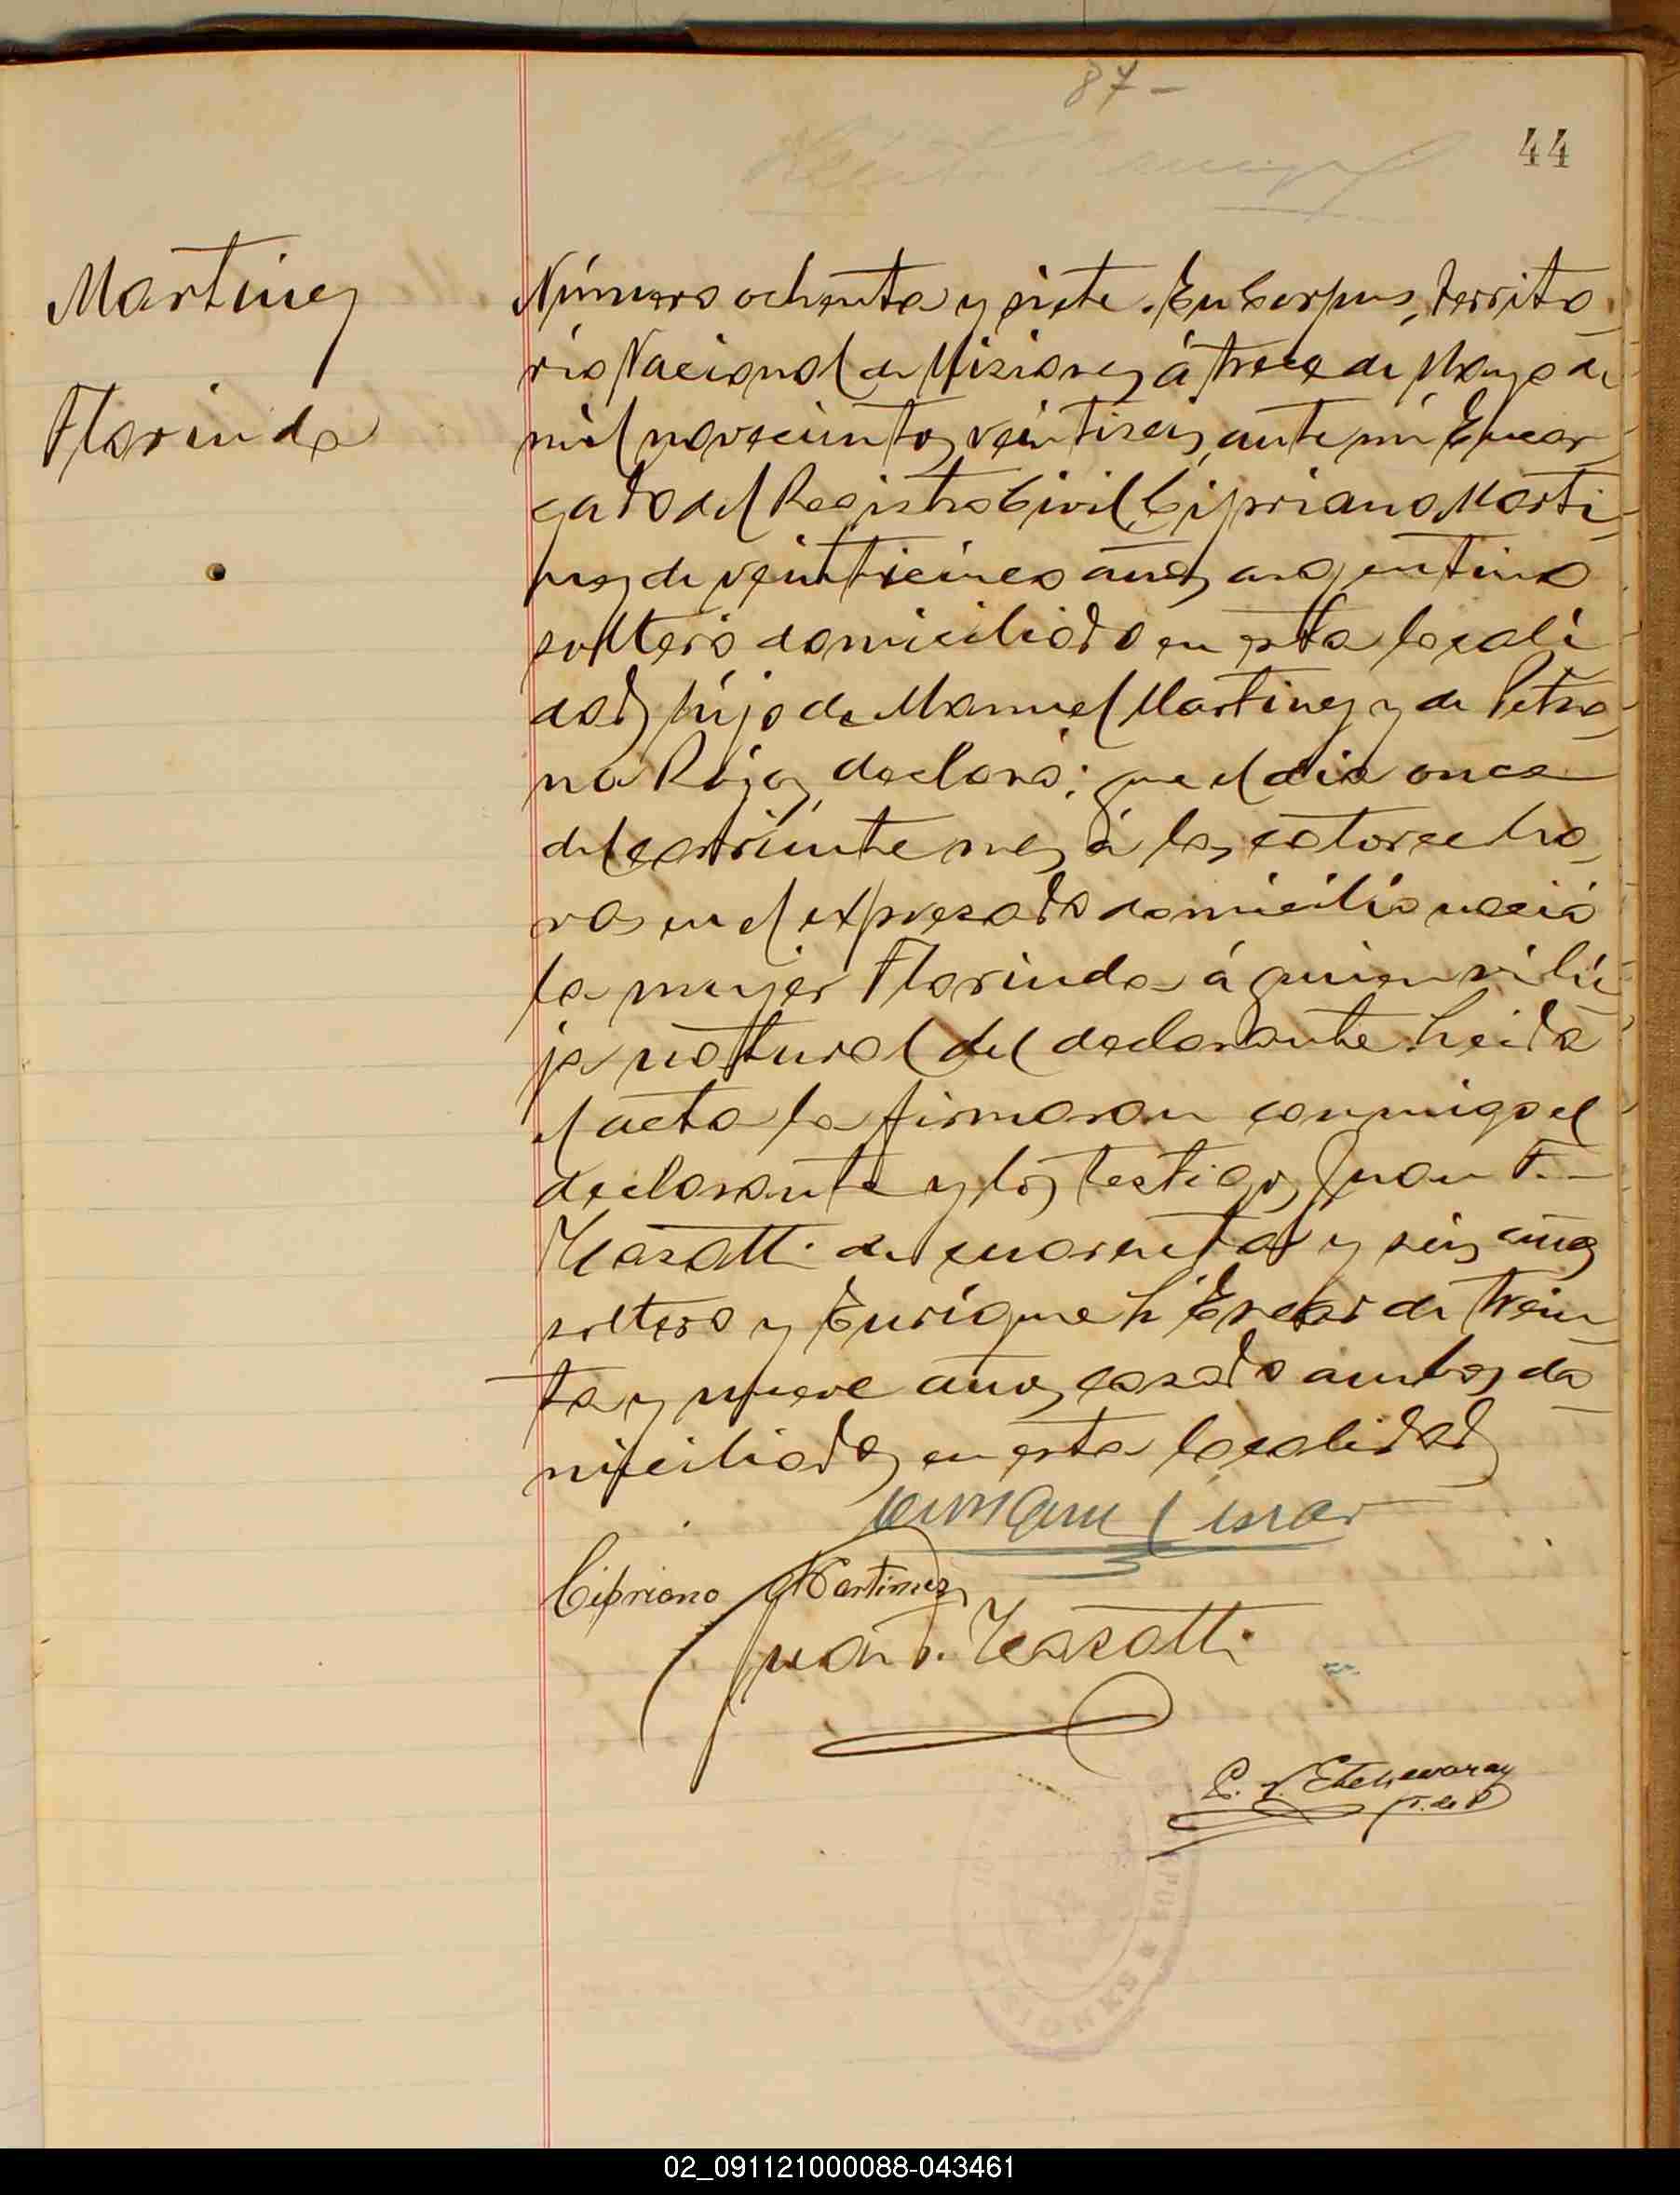 87-
44
Martinez
Florinda
Número ochenta y siete. En Corpus, Territo
rio Nacional de Misiones á trece de Mayo de
mil novecientos veintiseis, ante mi Encar
gado del Registro Civil Cipriano Marti
nez de veinticinco años argentino
soltero domiciliado en esta locali
dad, hijo de Manuel Martinez y de Petro
na Rojas, declaró: que el dia once
del corriente mes á las catorce ho
ras en el expresado domicilio nació
la mujer Florinda á quien vi hi
ja natural del declarante. Leida
el acta la firmaron conmigo el
declarante y los testigos Juan F.
de cuarenta y seis años
soltero y Enrique de trein
ta y nueve años casado ambos do
miciliados en esta localidad
Cipriano Martinez
Juan
MISIONES
02_091121000088-043461